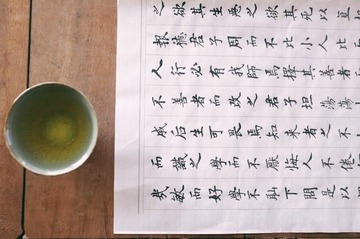 之欲其生惡之欲其死以
報德君子周而不比小人比
人行必有我師焉擇其善者
不善者而改之君子坦蕩
戚后生可畏焉知來者之不
而識之學而不厭誨人不倦
敏而好學不恥下問是以